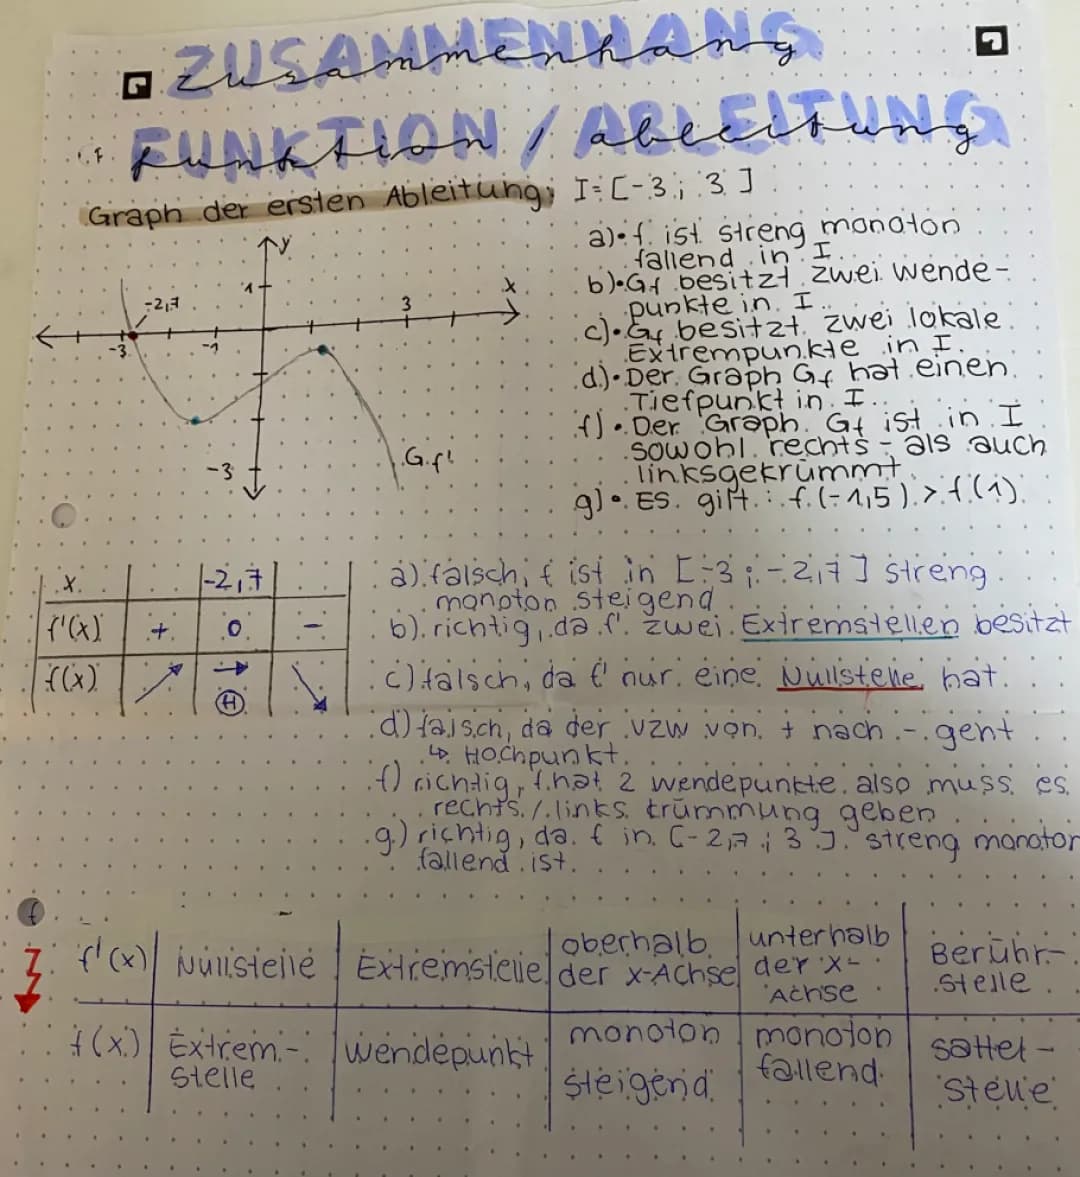 ZUSAMMENHANG
Zusammenhang
FUNKTION / ABLEITUNG
funktion / ableitung
Graph der ersten Ableitung; I=[-3; 3]
y
x
1
-2,7
3
-3
-1
-3
Gf'
a)• f ist streng monoton
fallend in I.
b)• Gf besitzt zwei Wende-
punkte in I.
c)• Gf besitzt zwei lokale
Extrempunkte in I.
d)• Der Graph Gf hat einen
Tiefpunkt in I.
f)• Der Graph Gf ist in I
sowohl rechts- als auch
linksgekrümmt.
g)• ES gilt: f(-1,5) > f(1).
x -2,7
f'(x) + 0 -
f(x) ↗ → ↘
H
a) falsch, f ist in [-3; -2,7] streng
monoton steigend
b) richtig, da f' zwei Extremstellen besitzt
c) falsch, da f' nur eine Nullstelle hat.
d) falsch, da der VZW von + nach - geht
↳ Hochpunkt
f) richtig, f hat 2 wendepunkte also muss es
rechts / links krümmung geben
g) richtig, da f in [-2,7; 3] streng monoton
fallend ist.
f
f'(x) Nullstelle Extremstelle oberhalb der x-Achse unterhalb der x-Achse Berühr-stelle
f(x) Extrem-stelle wendepunkt monoton steigend monoton fallend sattel-stelle